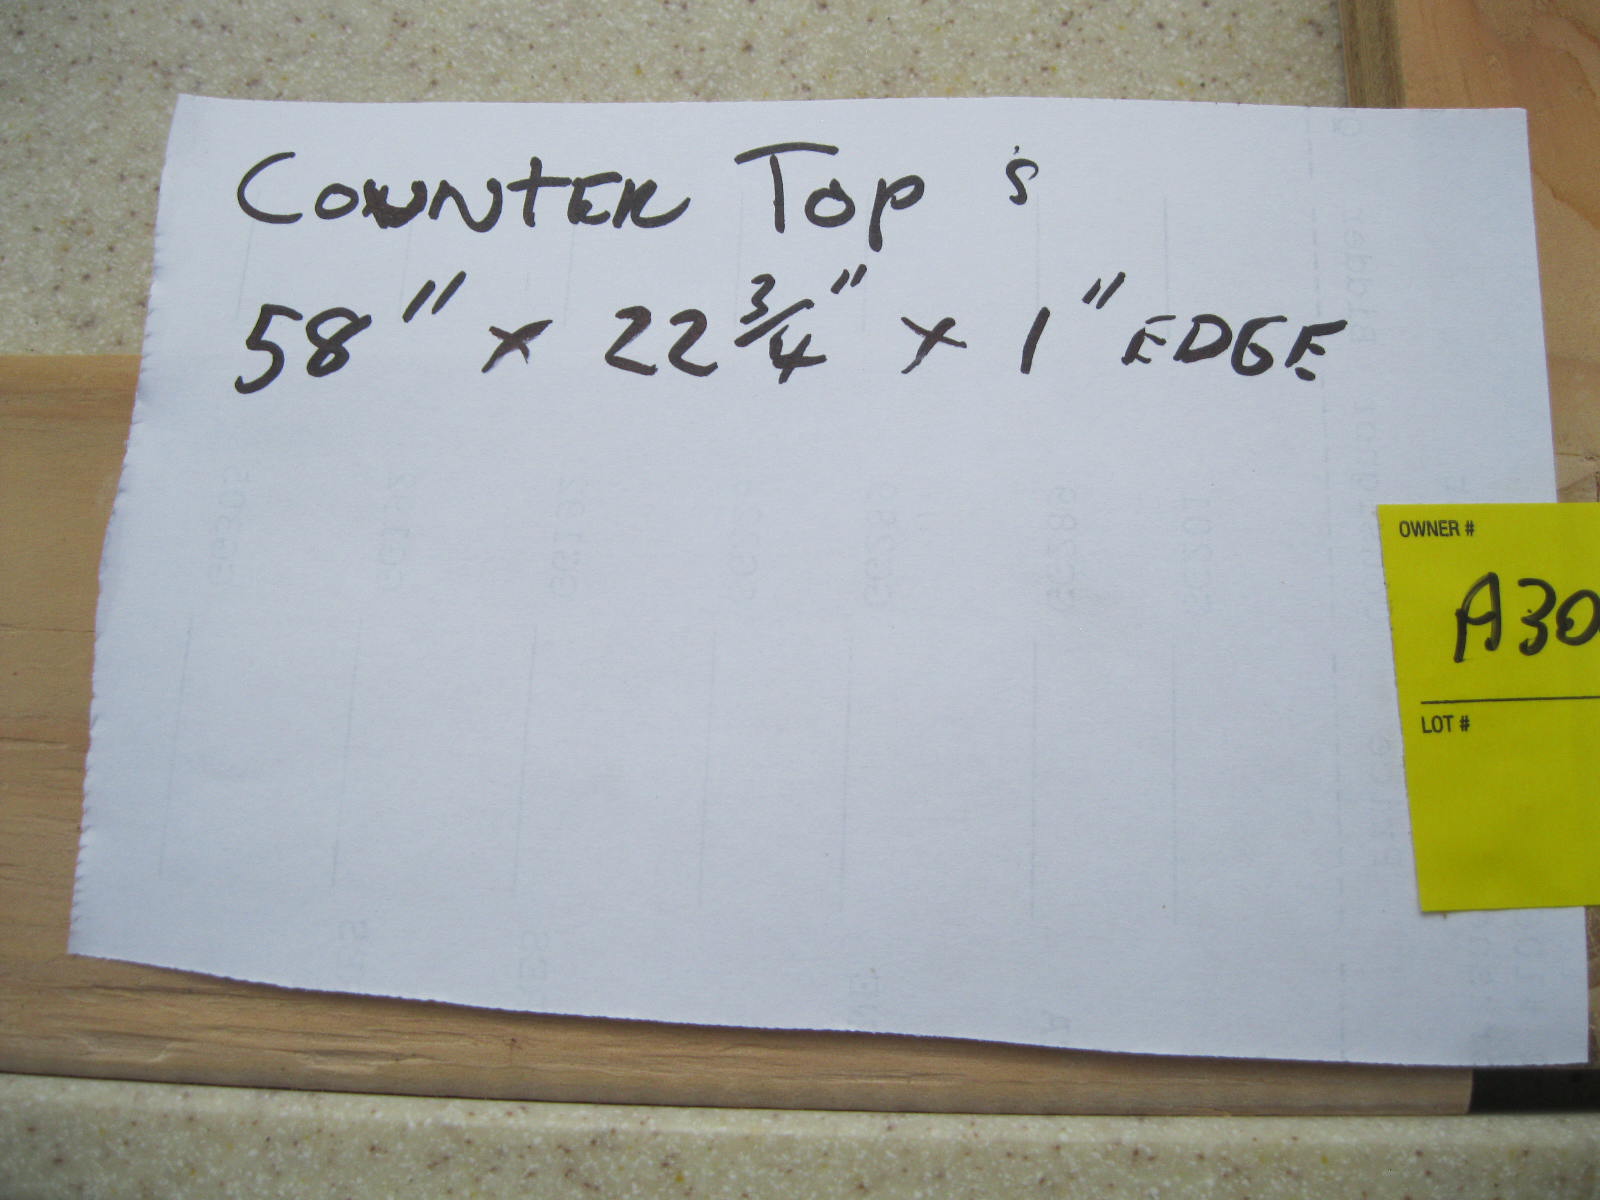 COUNTER TOP 's
58" x 22 3/4" x 1" EDGE
OWNER #
A30
LOT #